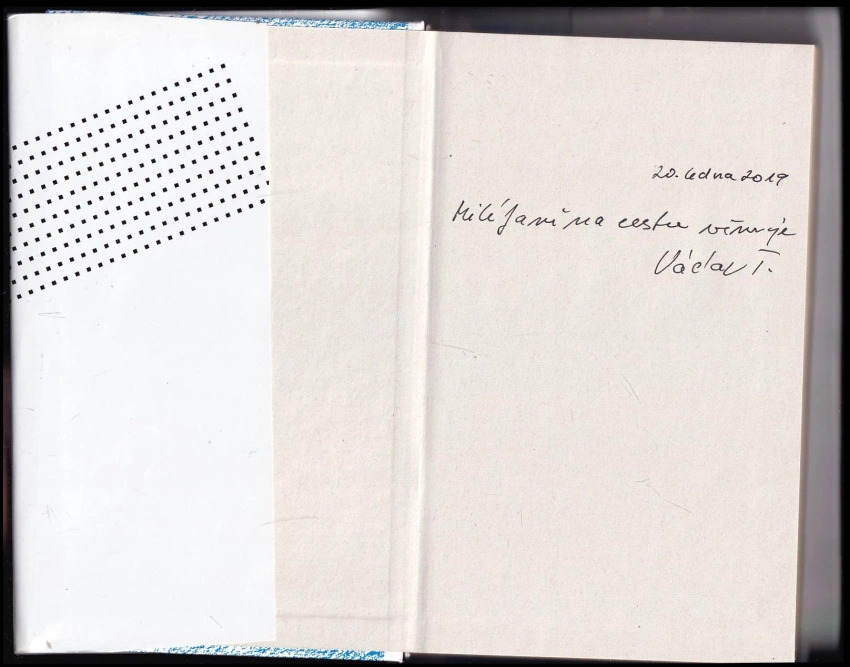 20. ledna 2019
Milé Janě na cestu věnuje
Václav T.